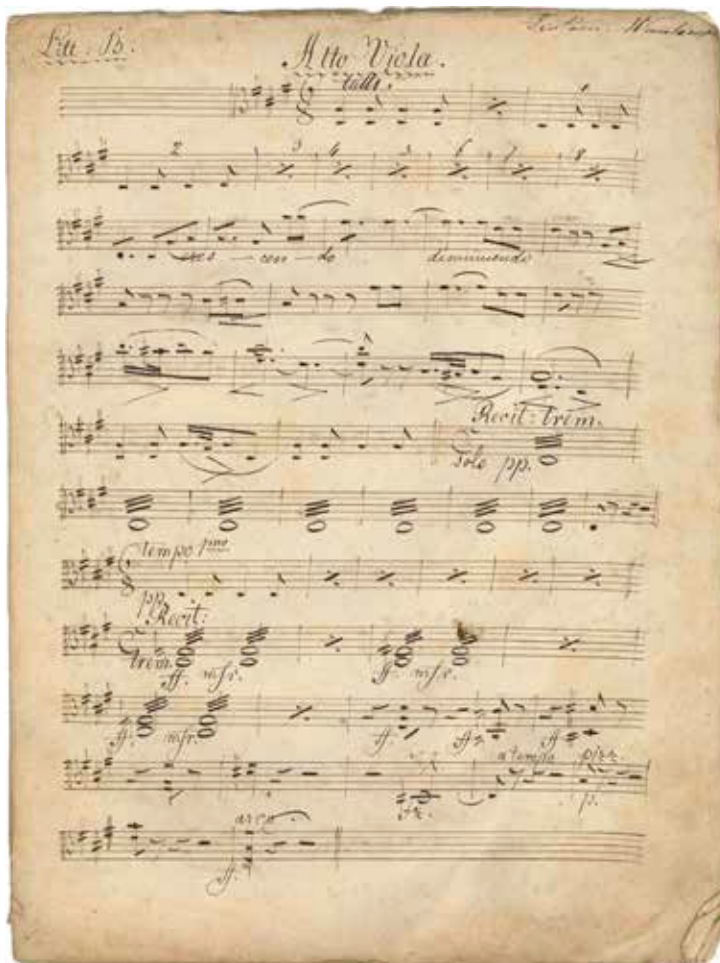 Litt: B.
Alto Viola.
tutti.
1
2 3 4 5 6 7 8
cres - cen - do diminuendo
Recit: trem.
Solo pp.
tempo pmo
pp.
Recit:
trem. ff. mfr. ff. mfr.
ff. mfr. ff. ff. ff.
a tempo pizz.
fz. p.
arco.
ff.